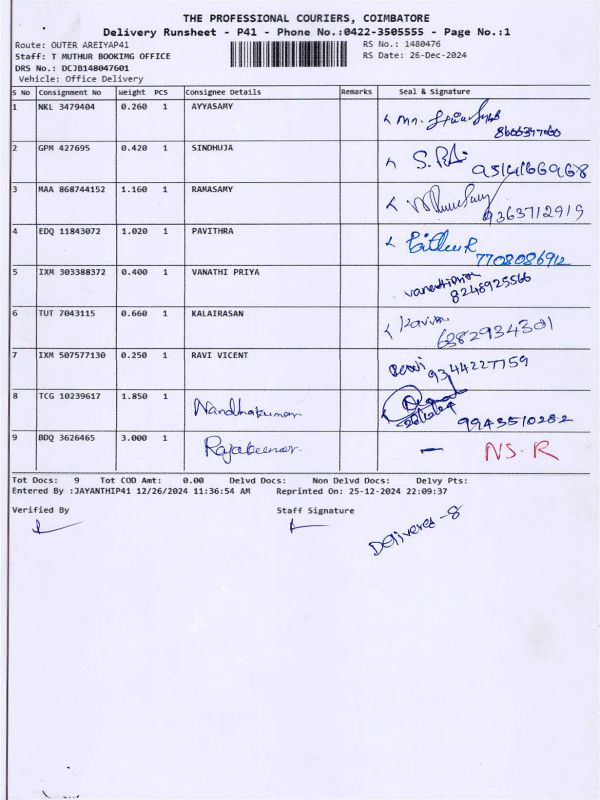 THE PROFESSIONAL COURIERS, COIMBATORE
Delivery Runsheet - P41 - Phone No.:0422-3505555 - Page No.:1
Route: OUTER AREIYAP41 RS No.: 1480476
Staff: T MUTHUR BOOKIMG OFFICE RS Date: 26-Dec-2024
DRS No.: DCJB148047601
Vehicle: Office Delivery
S No Consignment No Weight PCS Consignee Details Remarks Seal & Signature
1 NKL 3479404 0.260 1 AYYASAMY
2 GPM 427695 0.420 1 SINDHUJA
3 MAA 868744152 1.160 1 RAMASAMY 9363712919
4 EDQ 11843072 1.020 1 PAVITHRA 7708086912
5 IXM 303388372 0.400 1 VANATHI PRIYA 8248925566
6 TUT 7043115 0.660 1 KALAIRASAN 6382934301
7 IXM 507577130 0.250 1 RAVI VICENT 9344227759
8 TCG 10239617 1.850 1 Nandhakumar 9943510282
9 BDQ 3626465 3.000 1 Rajakumar - NS-R
Tot Docs: 9 Tot COD Amt: 0.00 Delvd Docs: Non Delvd Docs: Delvy Pts:
Entered By :JAYANTHIP41 12/26/2024 11:36:54 AM Reprinted On: 25-12-2024 22:09:37
Verified By Staff Signature
Delivered-8